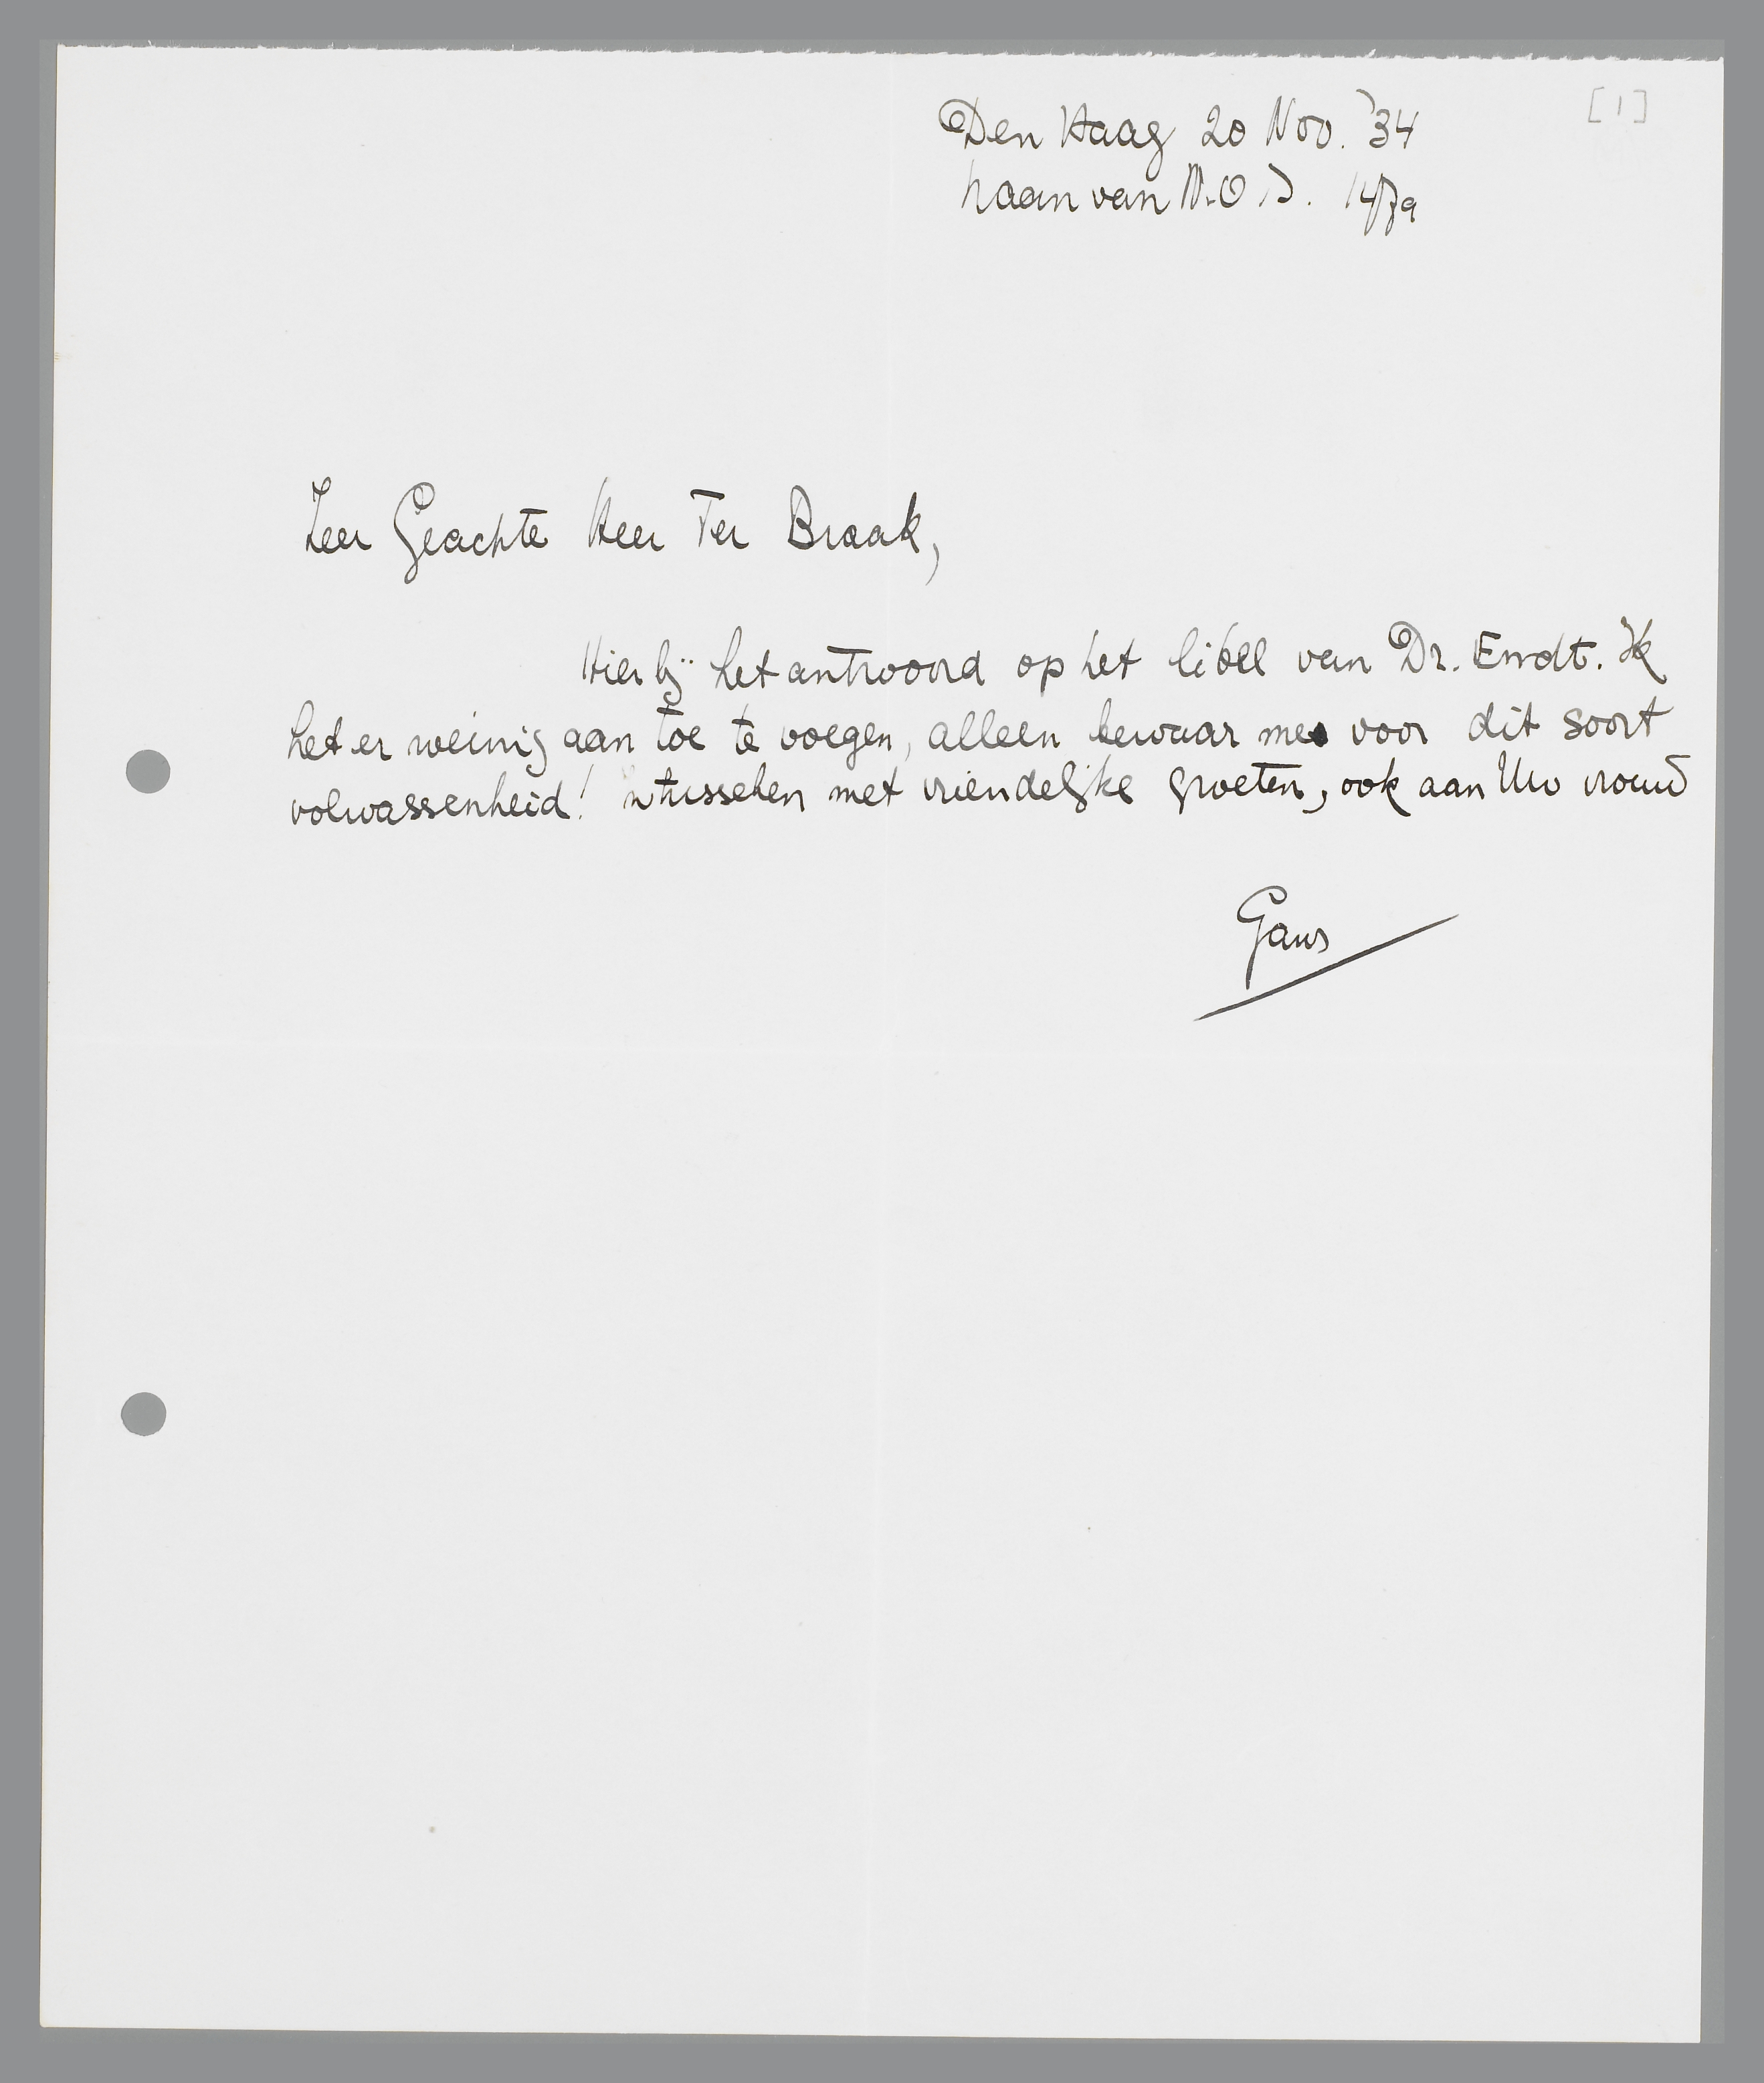 [1]
Den Haag 20 Nov. '34
Laan van N.O.I. 147a
Zeer Geachte Heer Ter Braak,
Hierbij het antwoord op het libell van Dr. Endt. Ik
heb er weinig aan toe te voegen, alleen bewaar me voor dit soort
volwassenheid! Intusschen met vriendelijke groeten, ook aan Uw vrouw
Gans